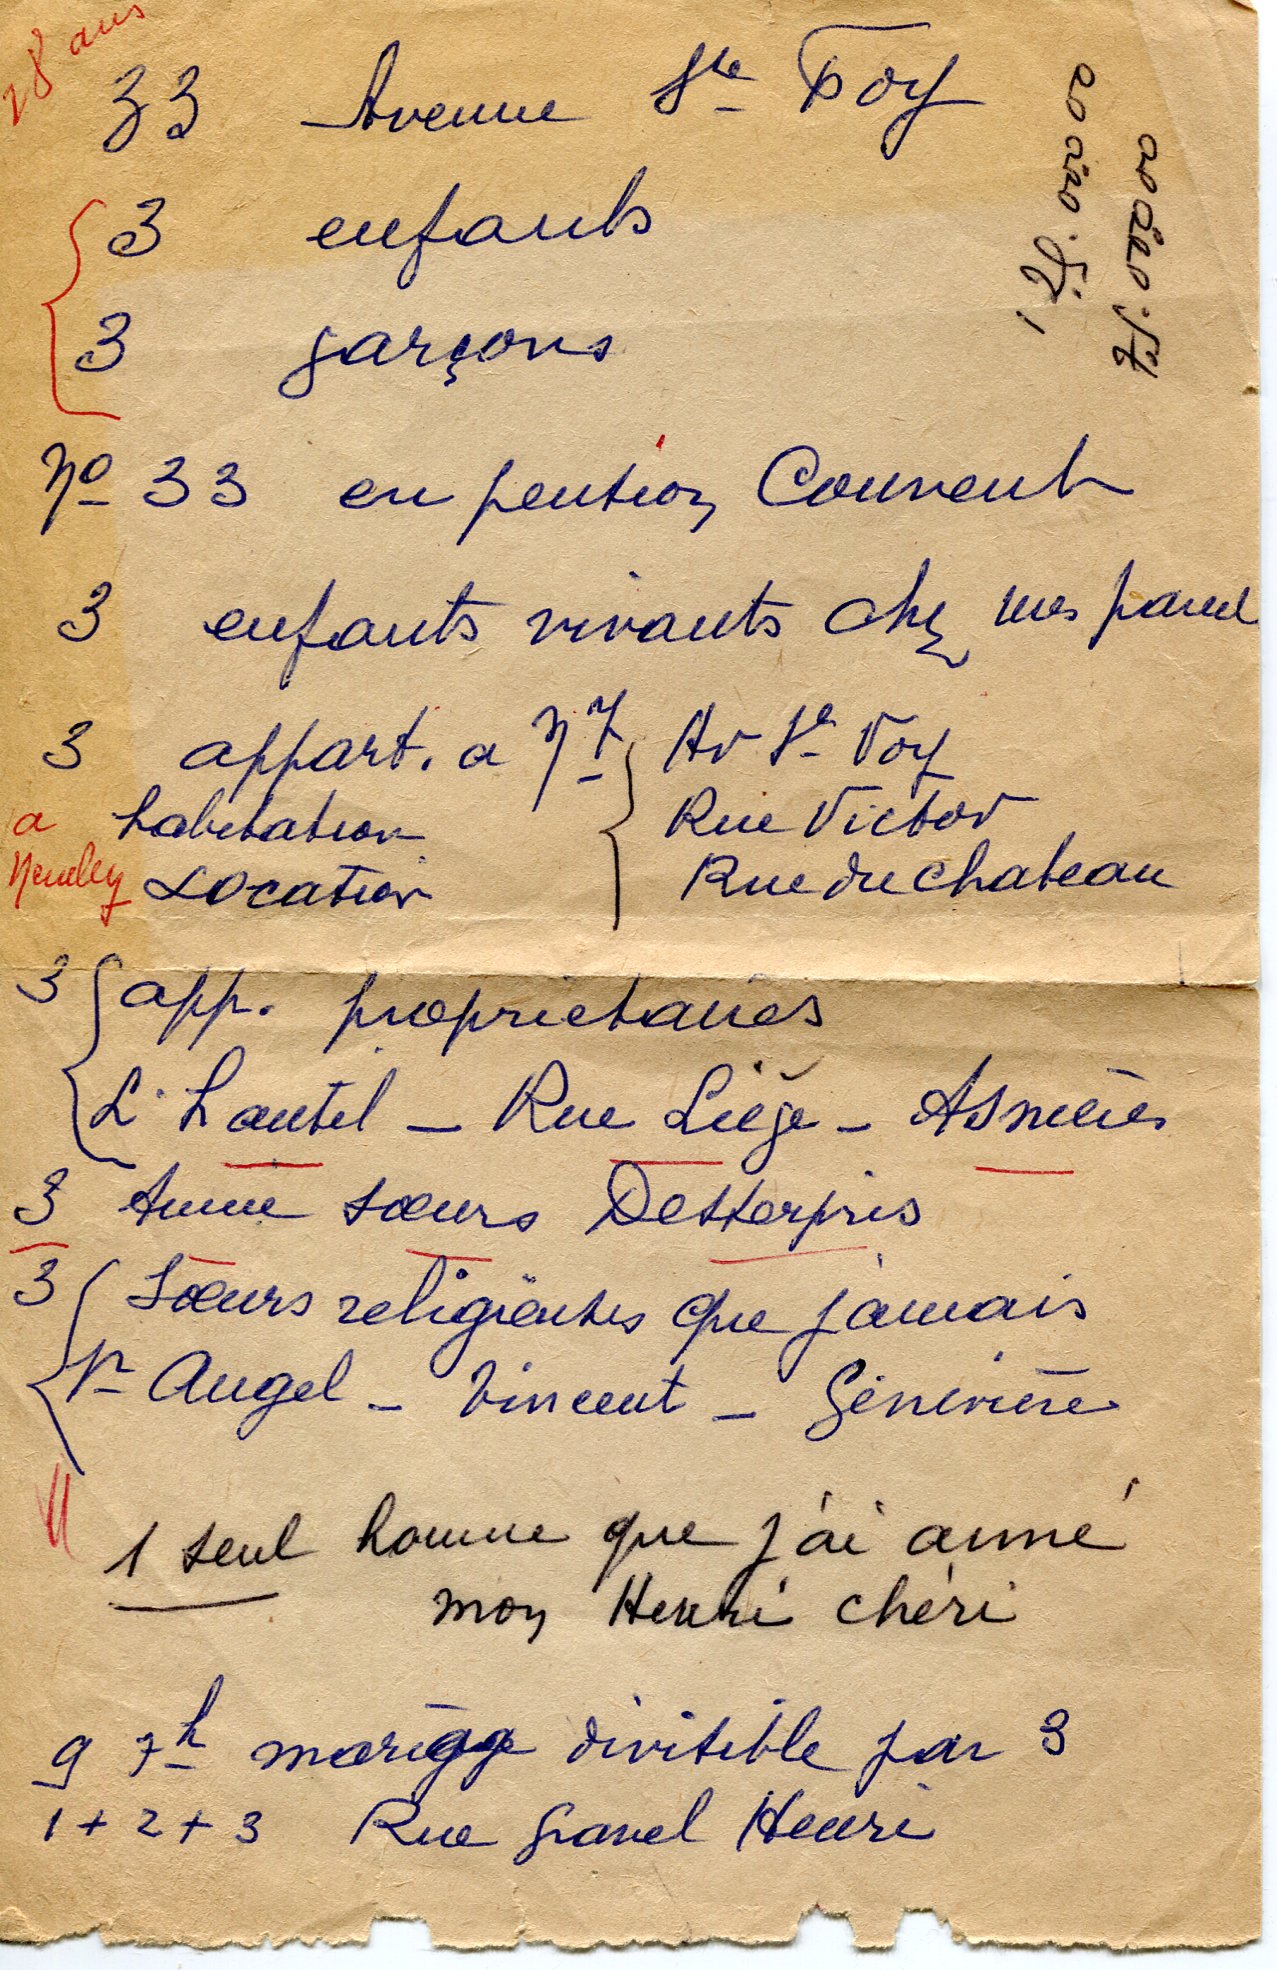 28 ans
33 Avenue Ste Foy
3 enfants
3 garçons
No 33 en pention Couvent
3 enfants vivants chez mes parent
3 appart. a N7 Av Ste Foy
a habitation Rue Victor
Neuilly Location Rue du Chateau
3 app. proprietaires
L'hautil - Rue Liège - Asnières
3 sœurs
3 Sœurs religieuses que jamais
St Angel - Vincent - Génevière
1 seul homme que j'ai aimé
mon Henri chéri
9 7h mariage divisible par 3
1 + 2 + 3 Rue Gravel Henri